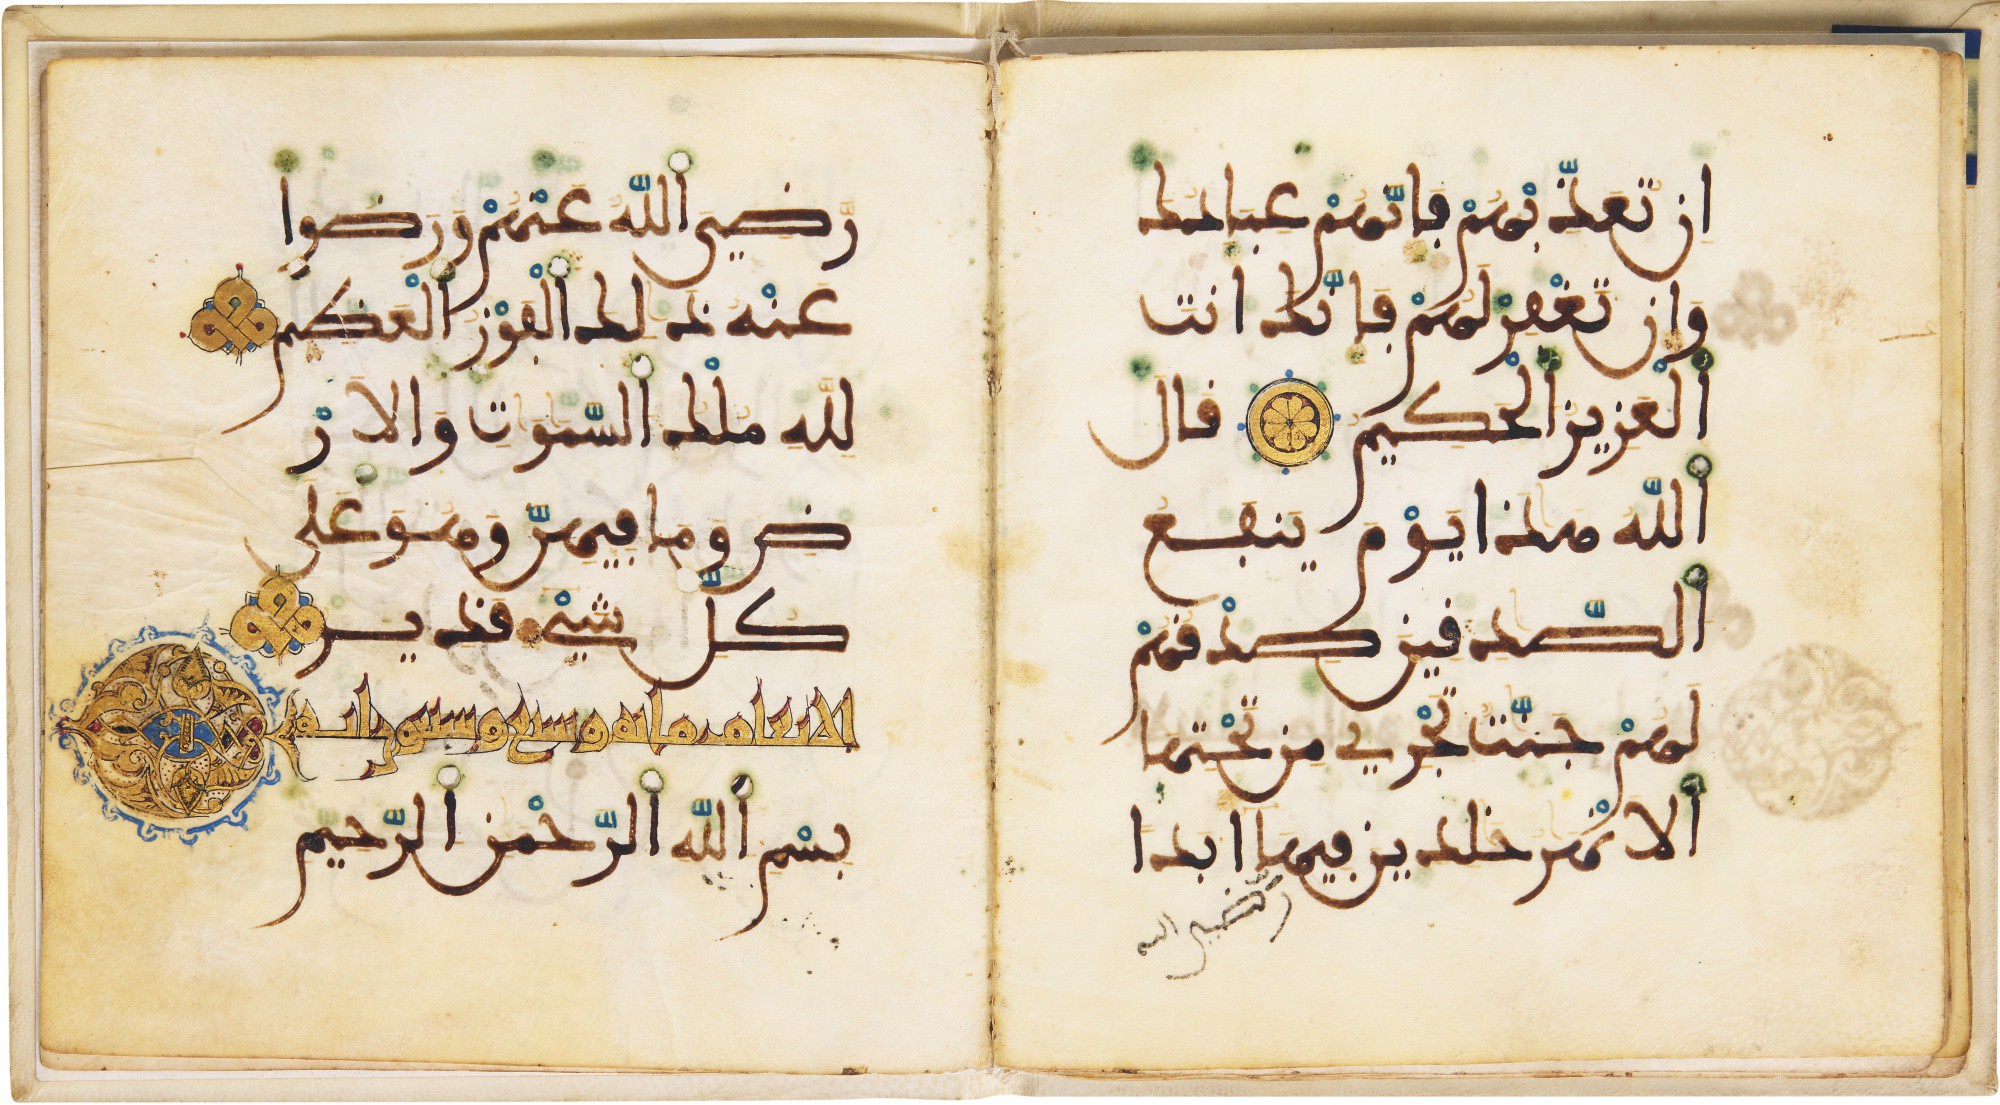 اِن تُعَذِّبْهُمْ فَإِنَّهُمْ عِبَادُكَ
وَإِن تَغْفِرْ لَهُمْ فَإِنَّكَ أَنتَ
اَلْعَزِيزُ الْحَكِيمُ قَالَ
اَللَّهُ هَٰذَا يَوْمَ يَنفَعُ
اَلصَّٰدِقِينَ صِدْقُهُمْ
لَهُمْ جَنَّٰتٌ تَجْرِي مِن تَحْتِهَا
اَلْأَنْهَٰرُ خَٰلِدِينَ فِيهَا أَبَدًا
رضي الله
رَّضِيَ اَللَّهُ عَنْهُمْ وَرَضُوا
عَنْهُ ذَٰلِكَ اَلْفَوْزُ اَلْعَظِيمُ
لِلَّهِ مُلْكُ اَلسَّمَٰوَٰتِ وَالْأَرْ
ضِ وَمَا فِيهِنَّ وَهُوَ عَلَىٰ
كُلِّ شَيْءٍ قَدِيرٌ
الانعام مائة وسبع وستون اية
بِسْمِ اَللَّهِ اَلرَّحْمَٰنِ اَلرَّحِيمِ